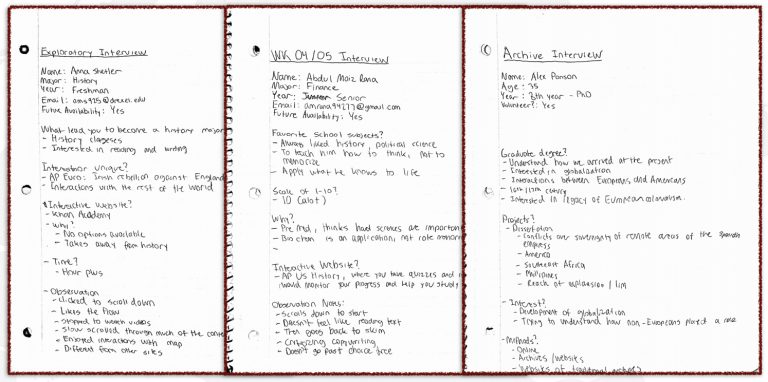 Exploratory Interview
Name: Anna Shetler
Major: History
Year: Freshman
Email: ams925@drexel.edu
Future Availability: Yes
What lead you to become a history major
- History classes
- Interested in reading and writing
unique?
- AP Euro: Irish rebellion against England
- Interactions with the rest of the world
Interactive website?
- Khan Academy
- Why?
- No options available
- Takes away from history
- Time?
- Hour plus
- Observation
- Clicked to scroll down
- Likes the flow
- Stopped to watch videos
- Slow scrolled through much of the conte
- Enjoyed interactions with map
- Different from other sites
WK 04/05 Interview
Name: Abdul Moiz Rana
Major: Finance
Year: Senior
Email: amrana94277@gmail.com
Future Availability: Yes
Favorite school subjects?
- Always liked history, political science
- To teach him how to think, not to
memorize
- Apply what he knows to life
Scale of 1-10?
- 10 (alot)
Why?
- Pre med, thinks hard sciences are important
- Bio chem is an application, not rote memori
-
Interactive Website?
- AP US History, where you take quizzes and it
would monitor your progress and help you study
Observation Notes:
- Scrolls down to start
- Doesn't feel like reading text
- Then goes back to skim
- Critiquing copywriting
- Doesn't go past choice tree
Archive Interview
Name: Alex Ponsen
Age: 35
Year: 8th year - PhD
Volunteer?: Yes
Graduate degree?
- Understand how we arrived at the present
- Interested in globalization
- Interactions between Europeans and Americans
- 16th/17th century
- Interested in legacy of European colonialism.
Projects?
- Dissertation
- Conflicts over sovereignty of remote areas of the Spanish
empires
- America
- Southeast Africa
- Philippines
- Reach of expansion / lim
- Interest?
- Development of globalization
- Trying to understand how non-Europeans played a role
- Methods?
- Online
- Archives/websites
- Websites of traditional archives